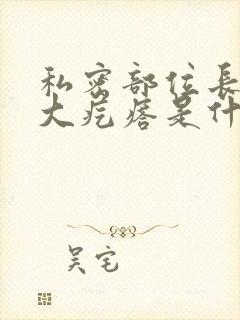 私密部位長
大疙瘩是什
吴宅